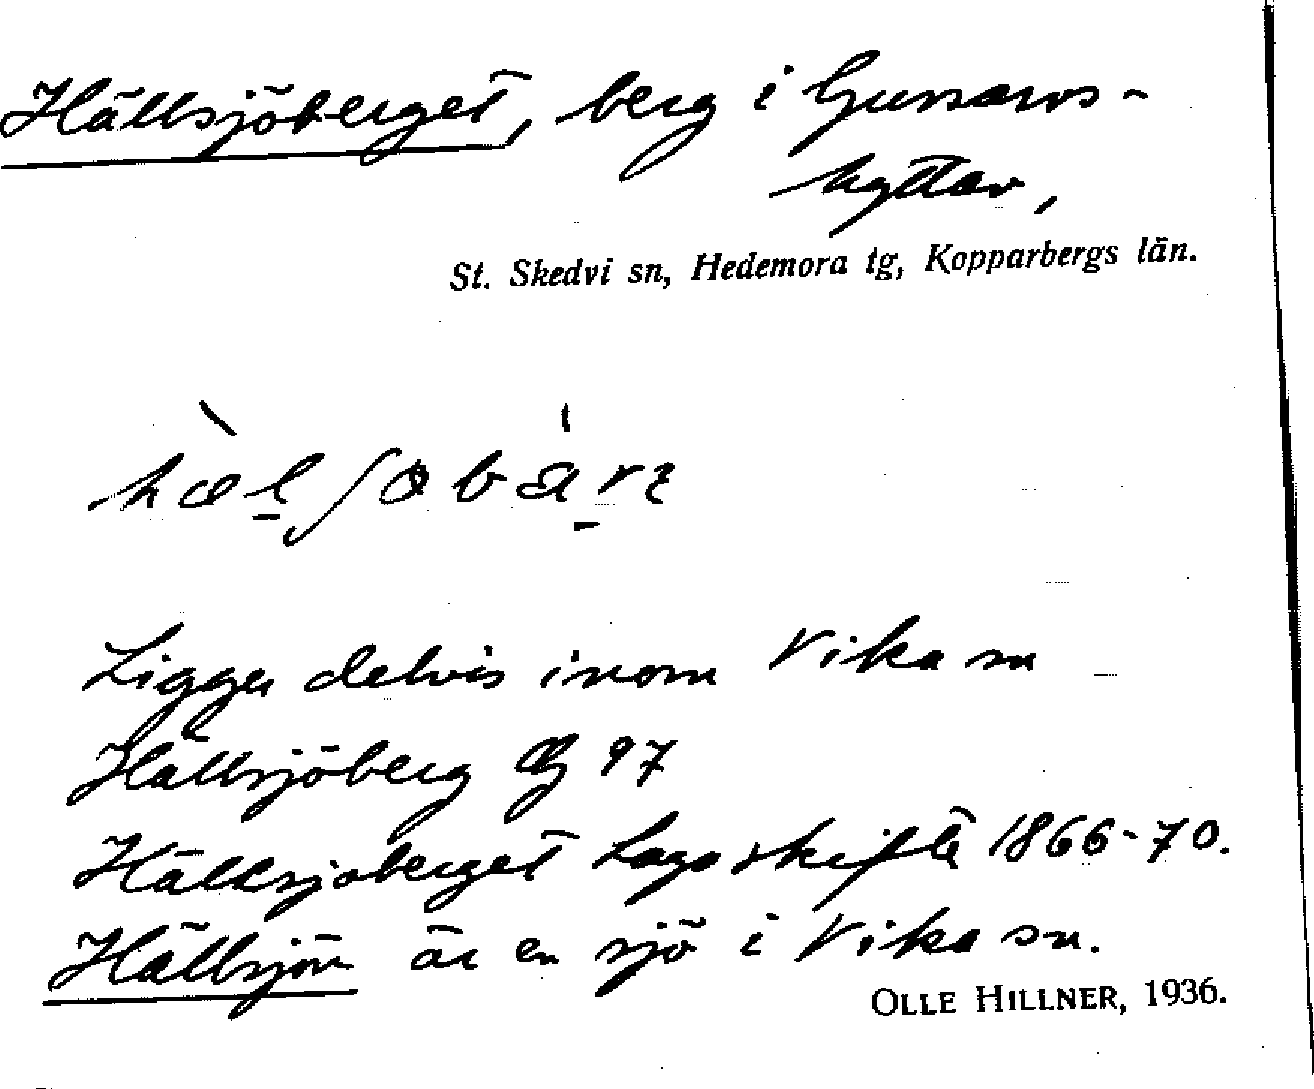 Hällsjöberget, berg i Gussarvs-
hyttan,
St. Skedvi sn, Hedemora tg, Kopparbergs län.
Ligger delvis inom Vika sn
Hällsjöberg 97
Hällsjöberget Laga skifte 1866-70.
Hällsjön är en sjö i Vika sn.
OLLE HILLNER, 1936.